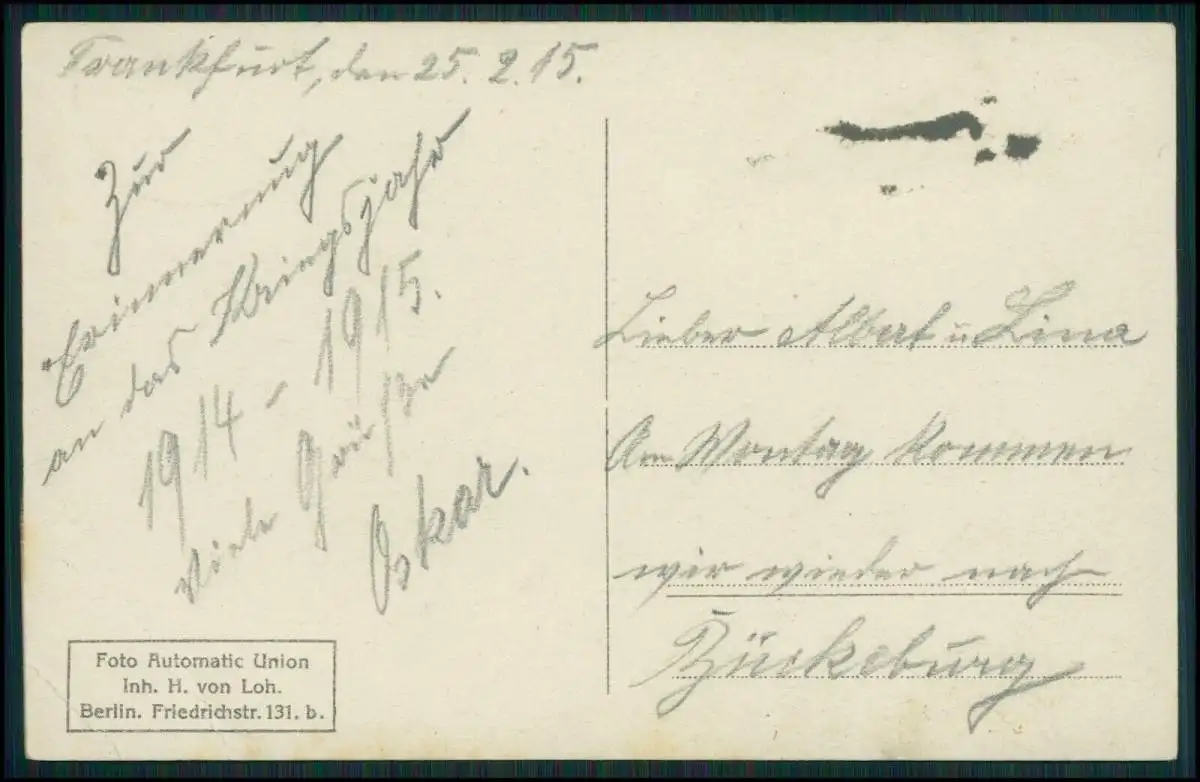 Frankfurt, den 25. 2. 15.
Zur
Erinnerung
an das Kriegsjahr
1914 - 1915.
Viele Grüße
Oskar.
Foto Automatic Union
Inh. H. von Loh.
Berlin. Friedrichstr. 131. b.
Lieber Albert u Lina
Am Montag kommen
wir wieder nach
Bückeburg